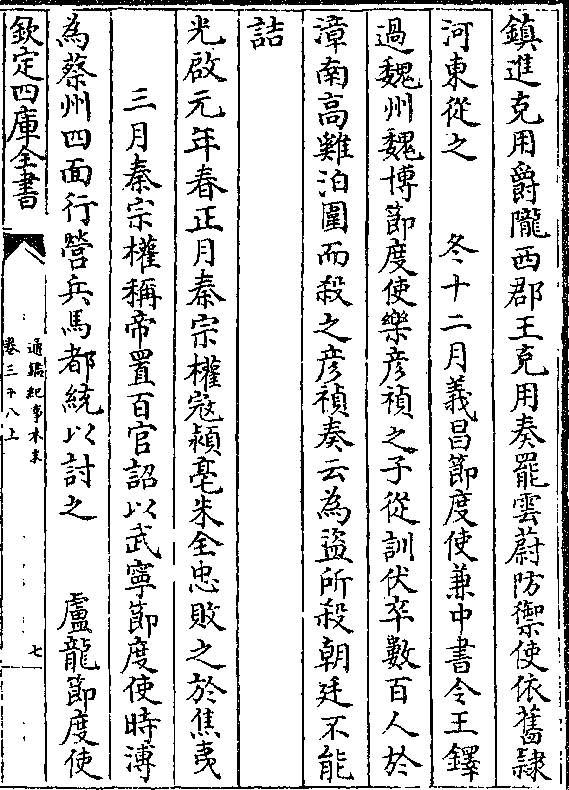 鎮進克用爵隴西郡王克用奏罷雲蔚防禦使依舊隷
河東從之　冬十二月義昌節度使兼中書令王鐸
過魏州魏博節度使樂彦禎之子從訓伏卒數百人於
漳南高雞泊圍而殺之彦禎奏云為盜所殺朝廷不能
詰
光啟元年春正月秦宗權寇潁亳朱全忠敗之於焦夷
三月秦宗權稱帝置百官詔以武寧節度使時溥
為蔡州四面行營兵馬都統以討之　盧龍節度使
欽定四庫全書
通鑑紀事本末
卷三十八上
七